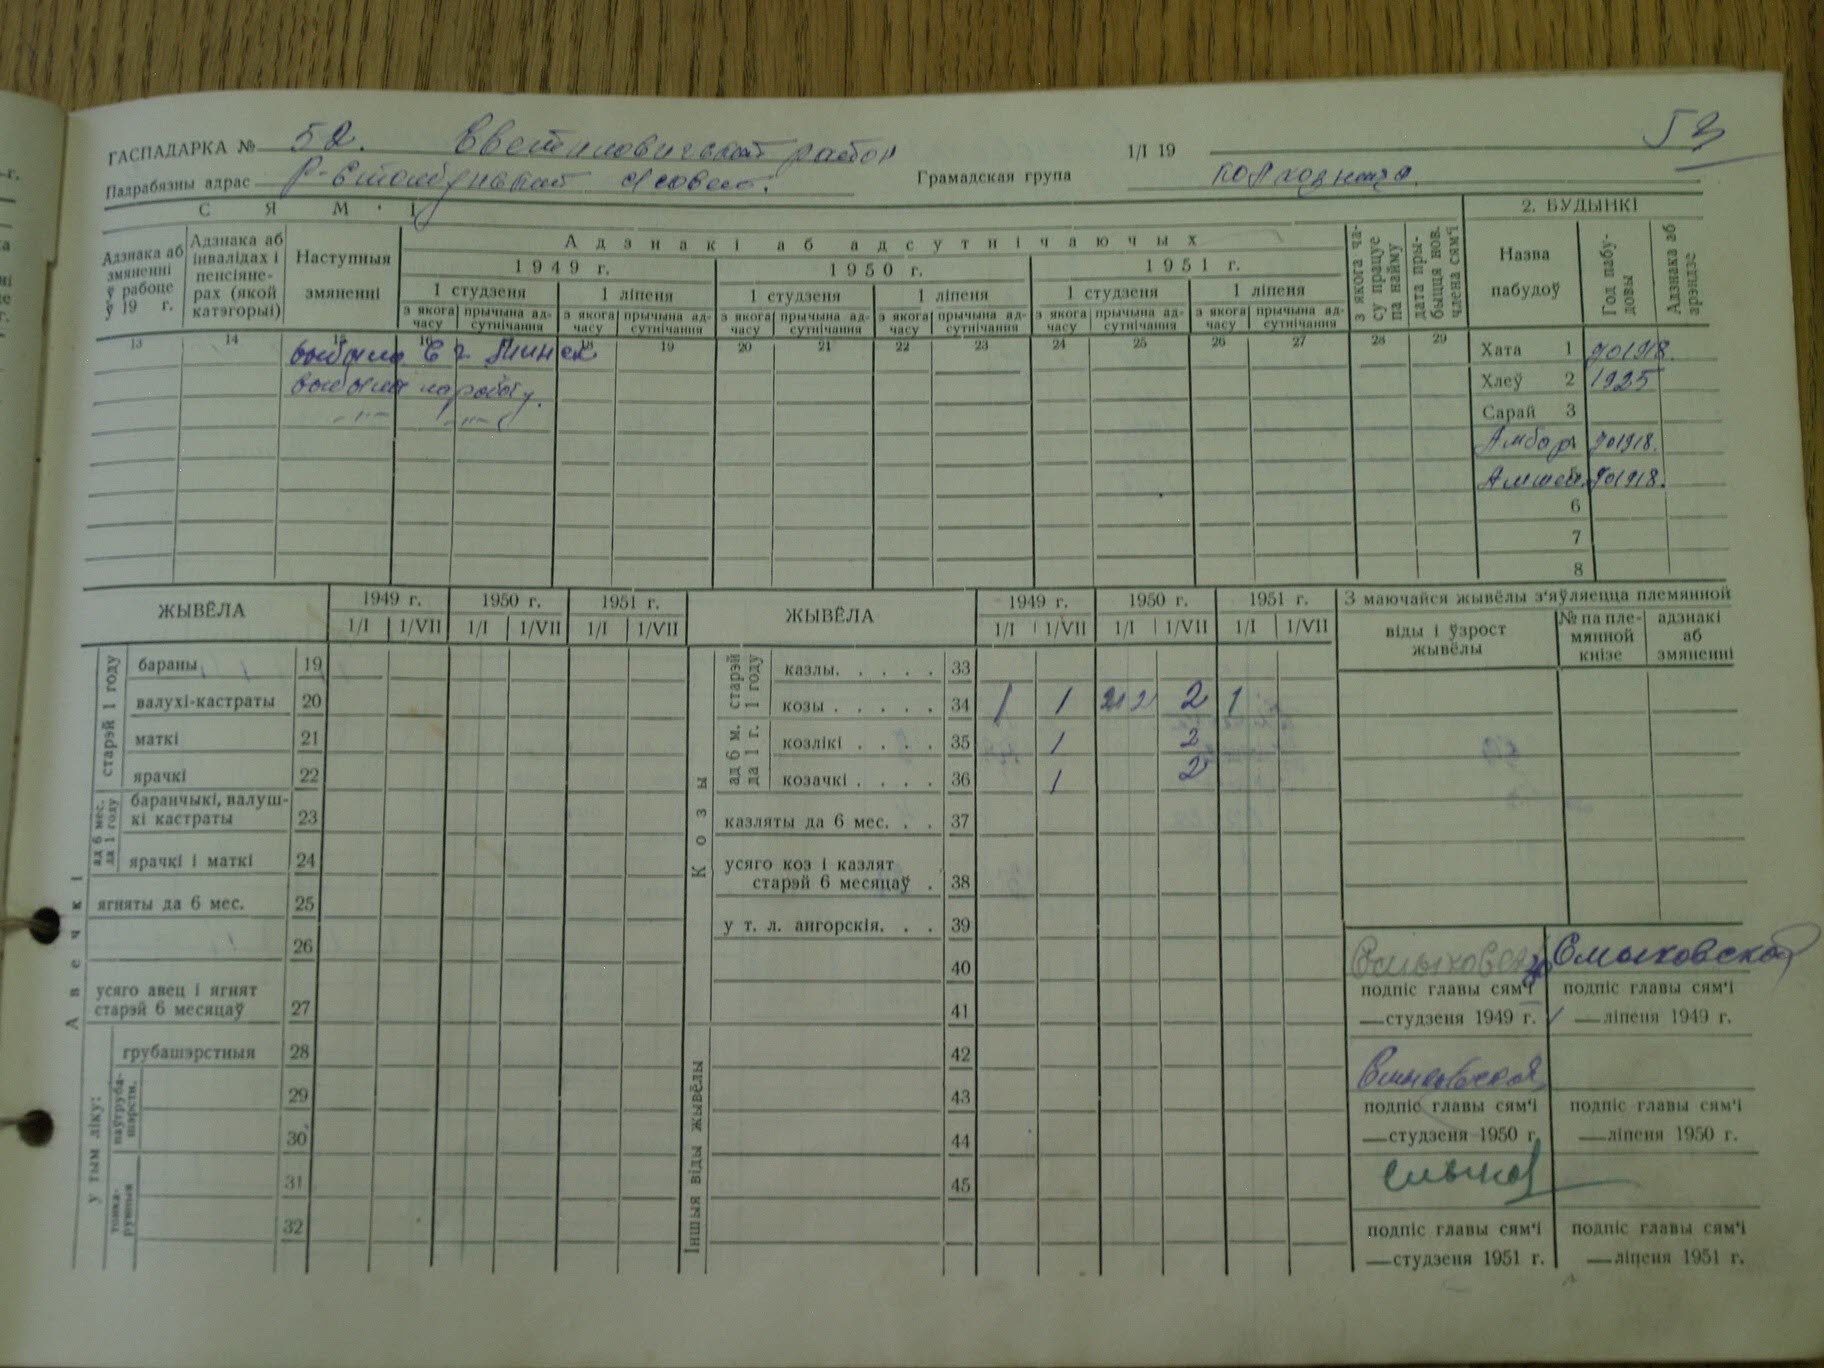 53
ГАСПАДАРКА № 52. район 1/I 19
Падрабязны адрас Грамадская група колхозница
СЯМ'І
2. БУДЫНКІ
Адзнака аб змяненні ў рабоце ў 19 г.
Адзнака аб інвалідах і пенсіянерах (якой катэгорыі)
Наступныя змяненні
Адзнакі аб адсутнічаючых
1949 г. 1950 г. 1951 г.
1 студзеня 1 ліпеня 1 студзеня 1 ліпеня 1 студзеня 1 ліпеня
з якога часу прычына адсутнічання з якога часу прычына адсутнічання з якога часу прычына адсутнічання з якога часу прычына адсутнічання з якога часу прычына адсутнічання з якога часу прычына адсутнічання
з якога часу працуе па найму
дата прыбыцця нов. члена сям'і
Назва пабудоў
Год пабудовы
Адзнака аб арэндзе
13 14 15 16 18 19 20 21 22 23 24 25 26 27 28 29
выбыла в г. Минск
выбыла на работу.
—"— —"—
Хата 1 до 1918.
Хлеў 2 1925
Сарай 3
Амбар до 1918.
до 1918.
6
7
8
ЖЫВЁЛА 1949 г. 1950 г. 1951 г.
1/I 1/VII 1/I 1/VII 1/I 1/VII
Авечкі
старэй 1 году
бараны 19
валухі-кастраты 20
маткі 21
ярачкі 22
ад 6 мес. да 1 году
баранчыкі, валушкі кастраты 23
ярачкі і маткі 24
ягняты да 6 мес. 25
26
усяго авец і ягнят старэй 6 месяцаў 27
у тым ліку:
грубашэрстныя 28
паўгрубашэрстн.
29
30
тонкарунныя
31
32
ЖЫВЁЛА 1949 г. 1950 г. 1951 г.
1/I 1/VII 1/I 1/VII 1/I 1/VII
Козы
старэй 1 году
казлы. . . . . 33
козы . . . . . 34 1 1 2 2 1
ад 6 м. да 1 г.
козлікі . . . . 35 1 2
козачкі . . . . 36 1 2
казляты да 6 мес. . . 37
усяго коз і казлят старэй 6 месяцаў . 38
у т. л. ангорскія. . . 39
40
41
Іншыя віды жывёлы
42
43
44
45
З маючайся жывёлы з'яўляецца племянной
віды і ўзрост жывёлы
№ па племянной кнізе
адзнакі аб змяненні
Смыковская Смыковская
подпіс главы сям'і подпіс главы сям'і
—студзеня 1949 г. —ліпеня 1949 г.
Смыковская
подпіс главы сям'і подпіс главы сям'і
—студзеня 1950 г. —ліпеня 1950 г.
подпіс главы сям'і подпіс главы сям'і
—студзеня 1951 г. —ліпеня 1951 г.